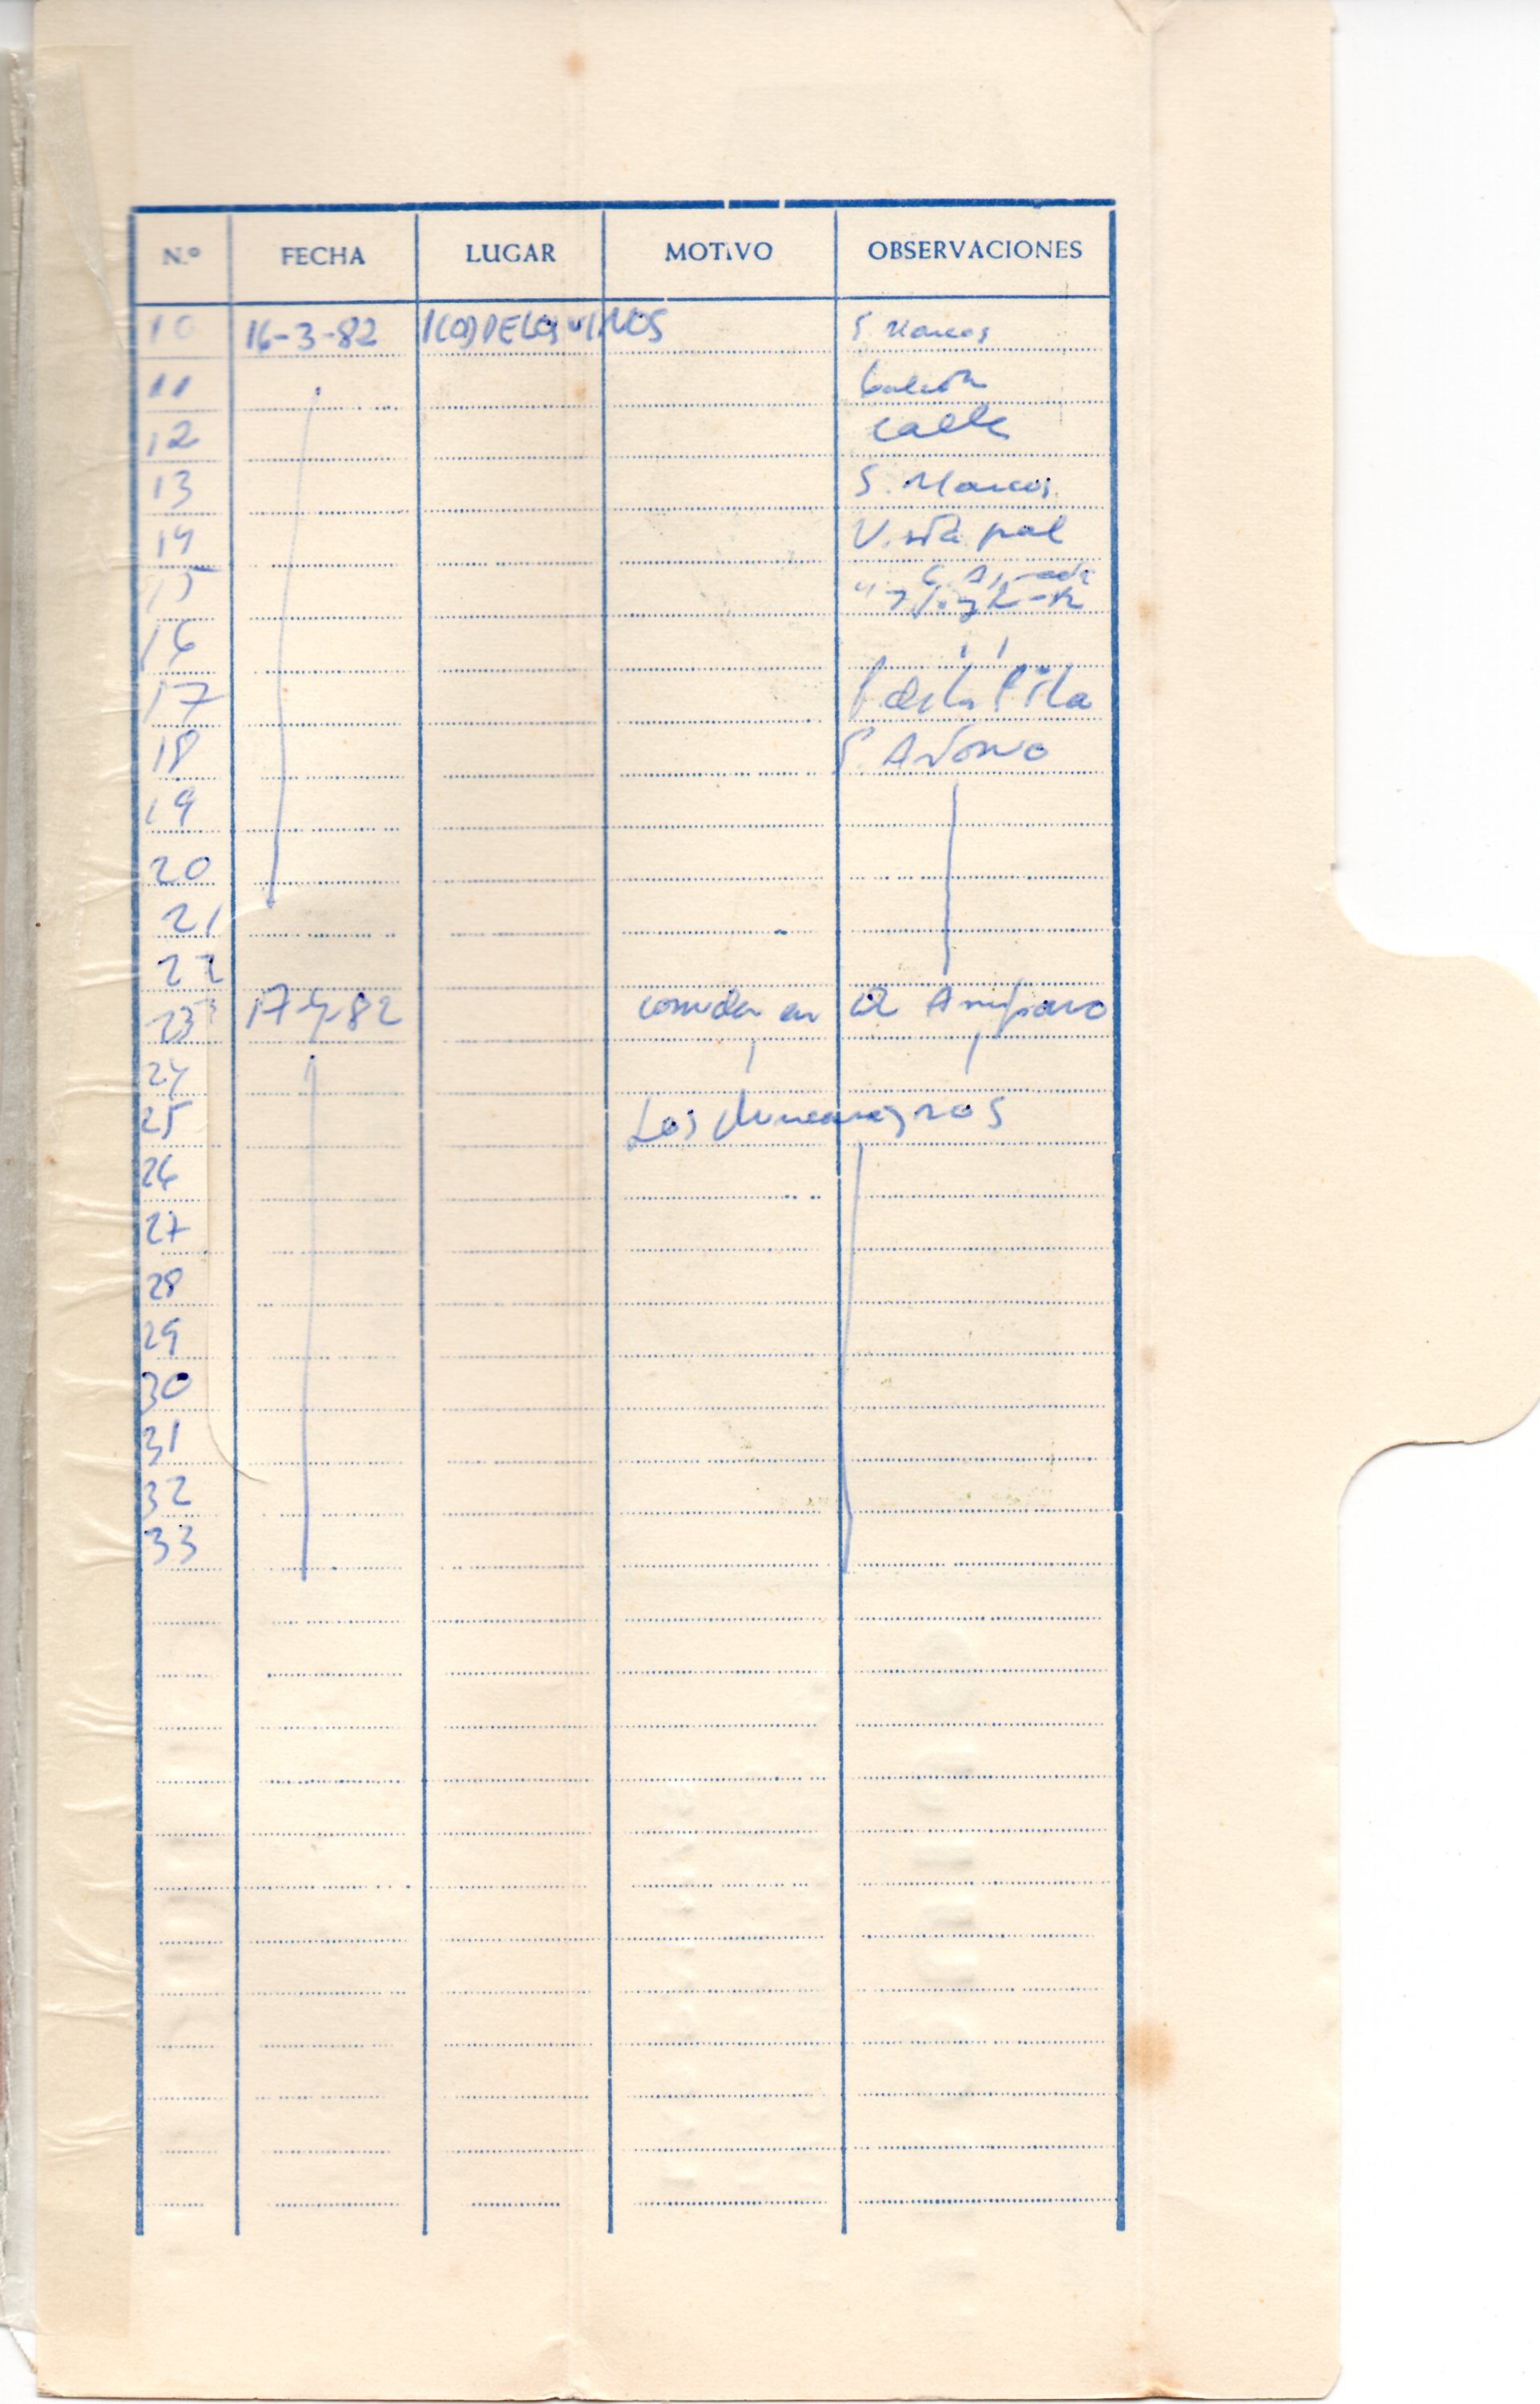 N.º FECHA LUGAR MOTIVO OBSERVACIONES
10 16-3-82 ICOD DE LOS VINOS S. Marcos
11 balcón
12 calle
13 S. Marcos
14 Vista pal
15 "
16
17 P de la Pila
18 P. ANTONIO
19
20
21
22
23 17-4-82 comida en el Amparo
24
25 Los
26
27
28
29
30
31
32
33